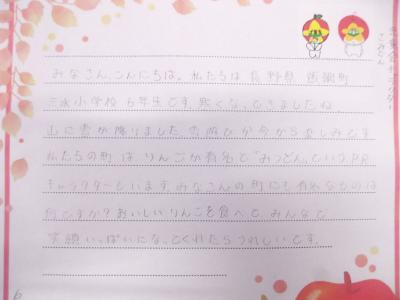 みなさん、こんにちは。私たちは長野県飯綱町
三水小学校5年生です。寒くなってきましたね。
山に雪が降りました。雪遊びが今から楽しみです。
私たちの町はりんごが有名で「みつどん」というPR
キャラクターもいます。みなさんの町にも有名なものは
何ですか？おいしいりんごを食べて、みんなで
笑顔いっぱいになってくれたらうれしいです。